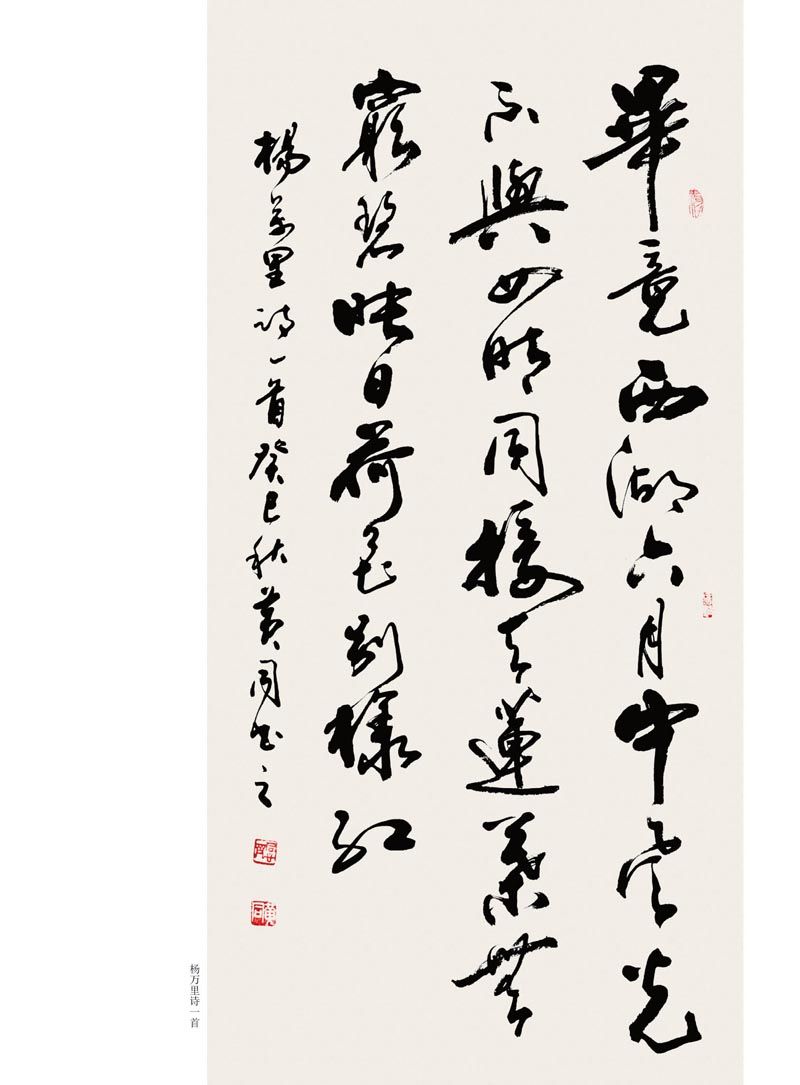 畢竟西湖六月中風光
不與四時同接天蓮葉無
窮碧映日荷花別樣紅
楊萬里詩一首癸巳秋黄同書之
黄同
杨万里诗一首